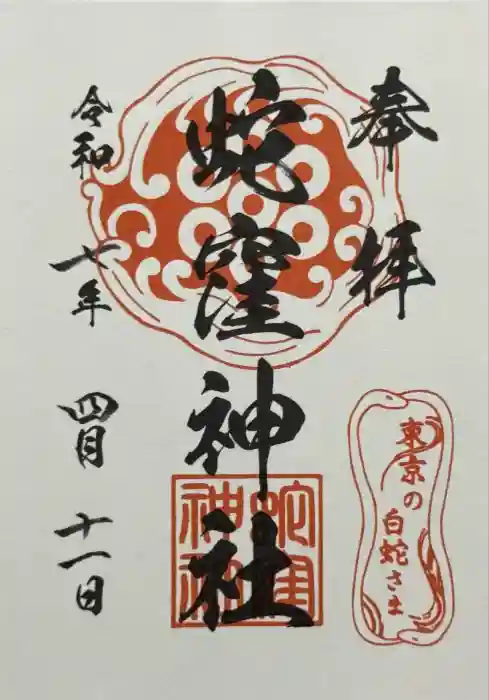 奉拝
蛇窪神社
蛇窪神社
東京の
白蛇さま
令和七年四月十一日